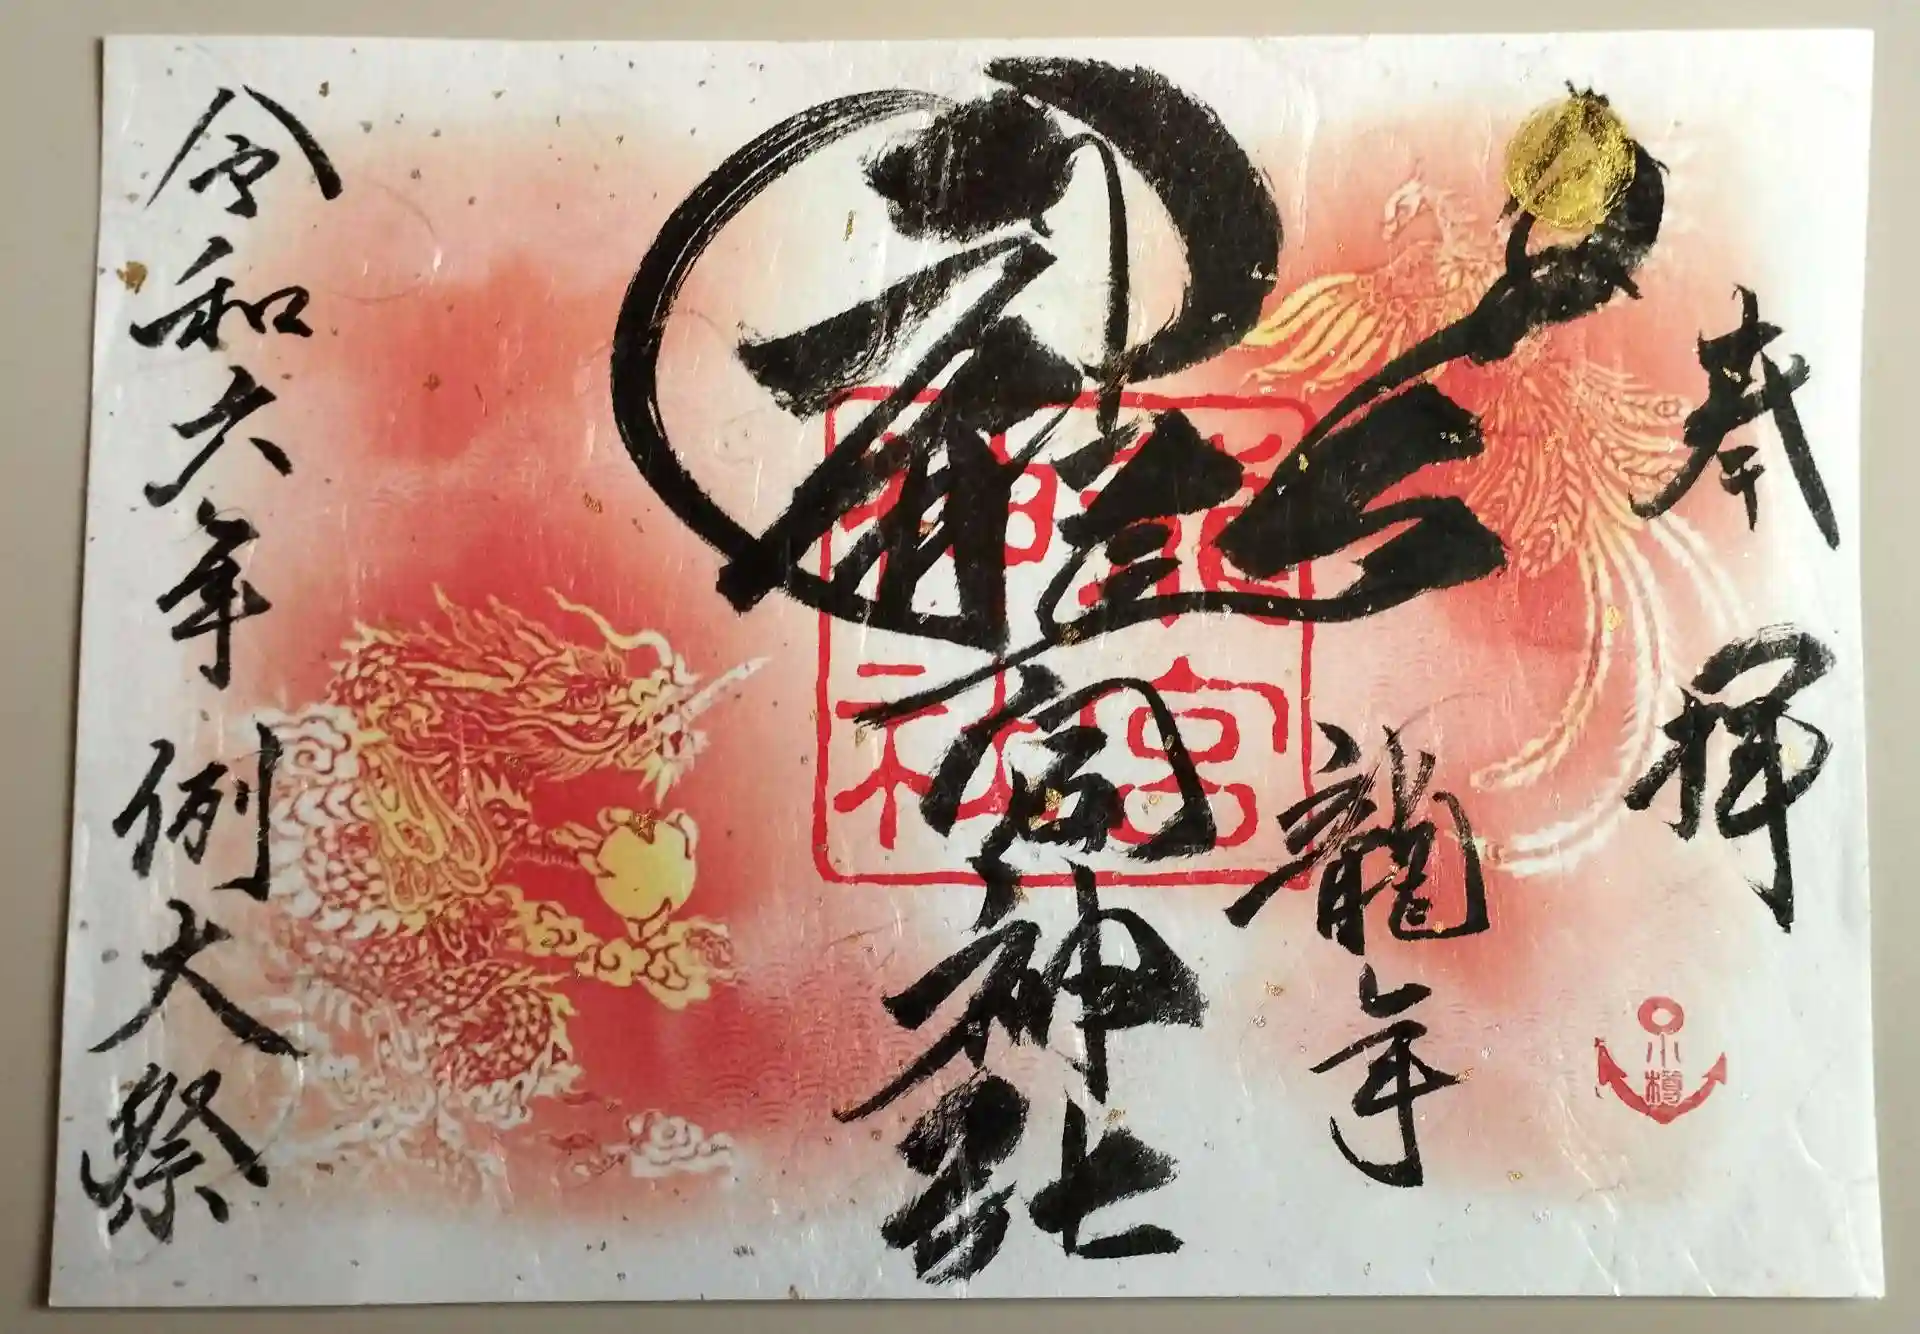 奉拝
龍年
龍宮神社
令和六年 例大祭
龍宮
神社
小樽